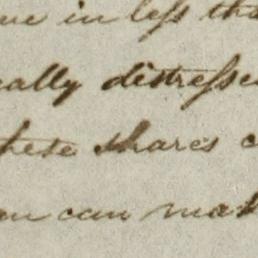 in less tha
cally distresse
these shares c
can mak